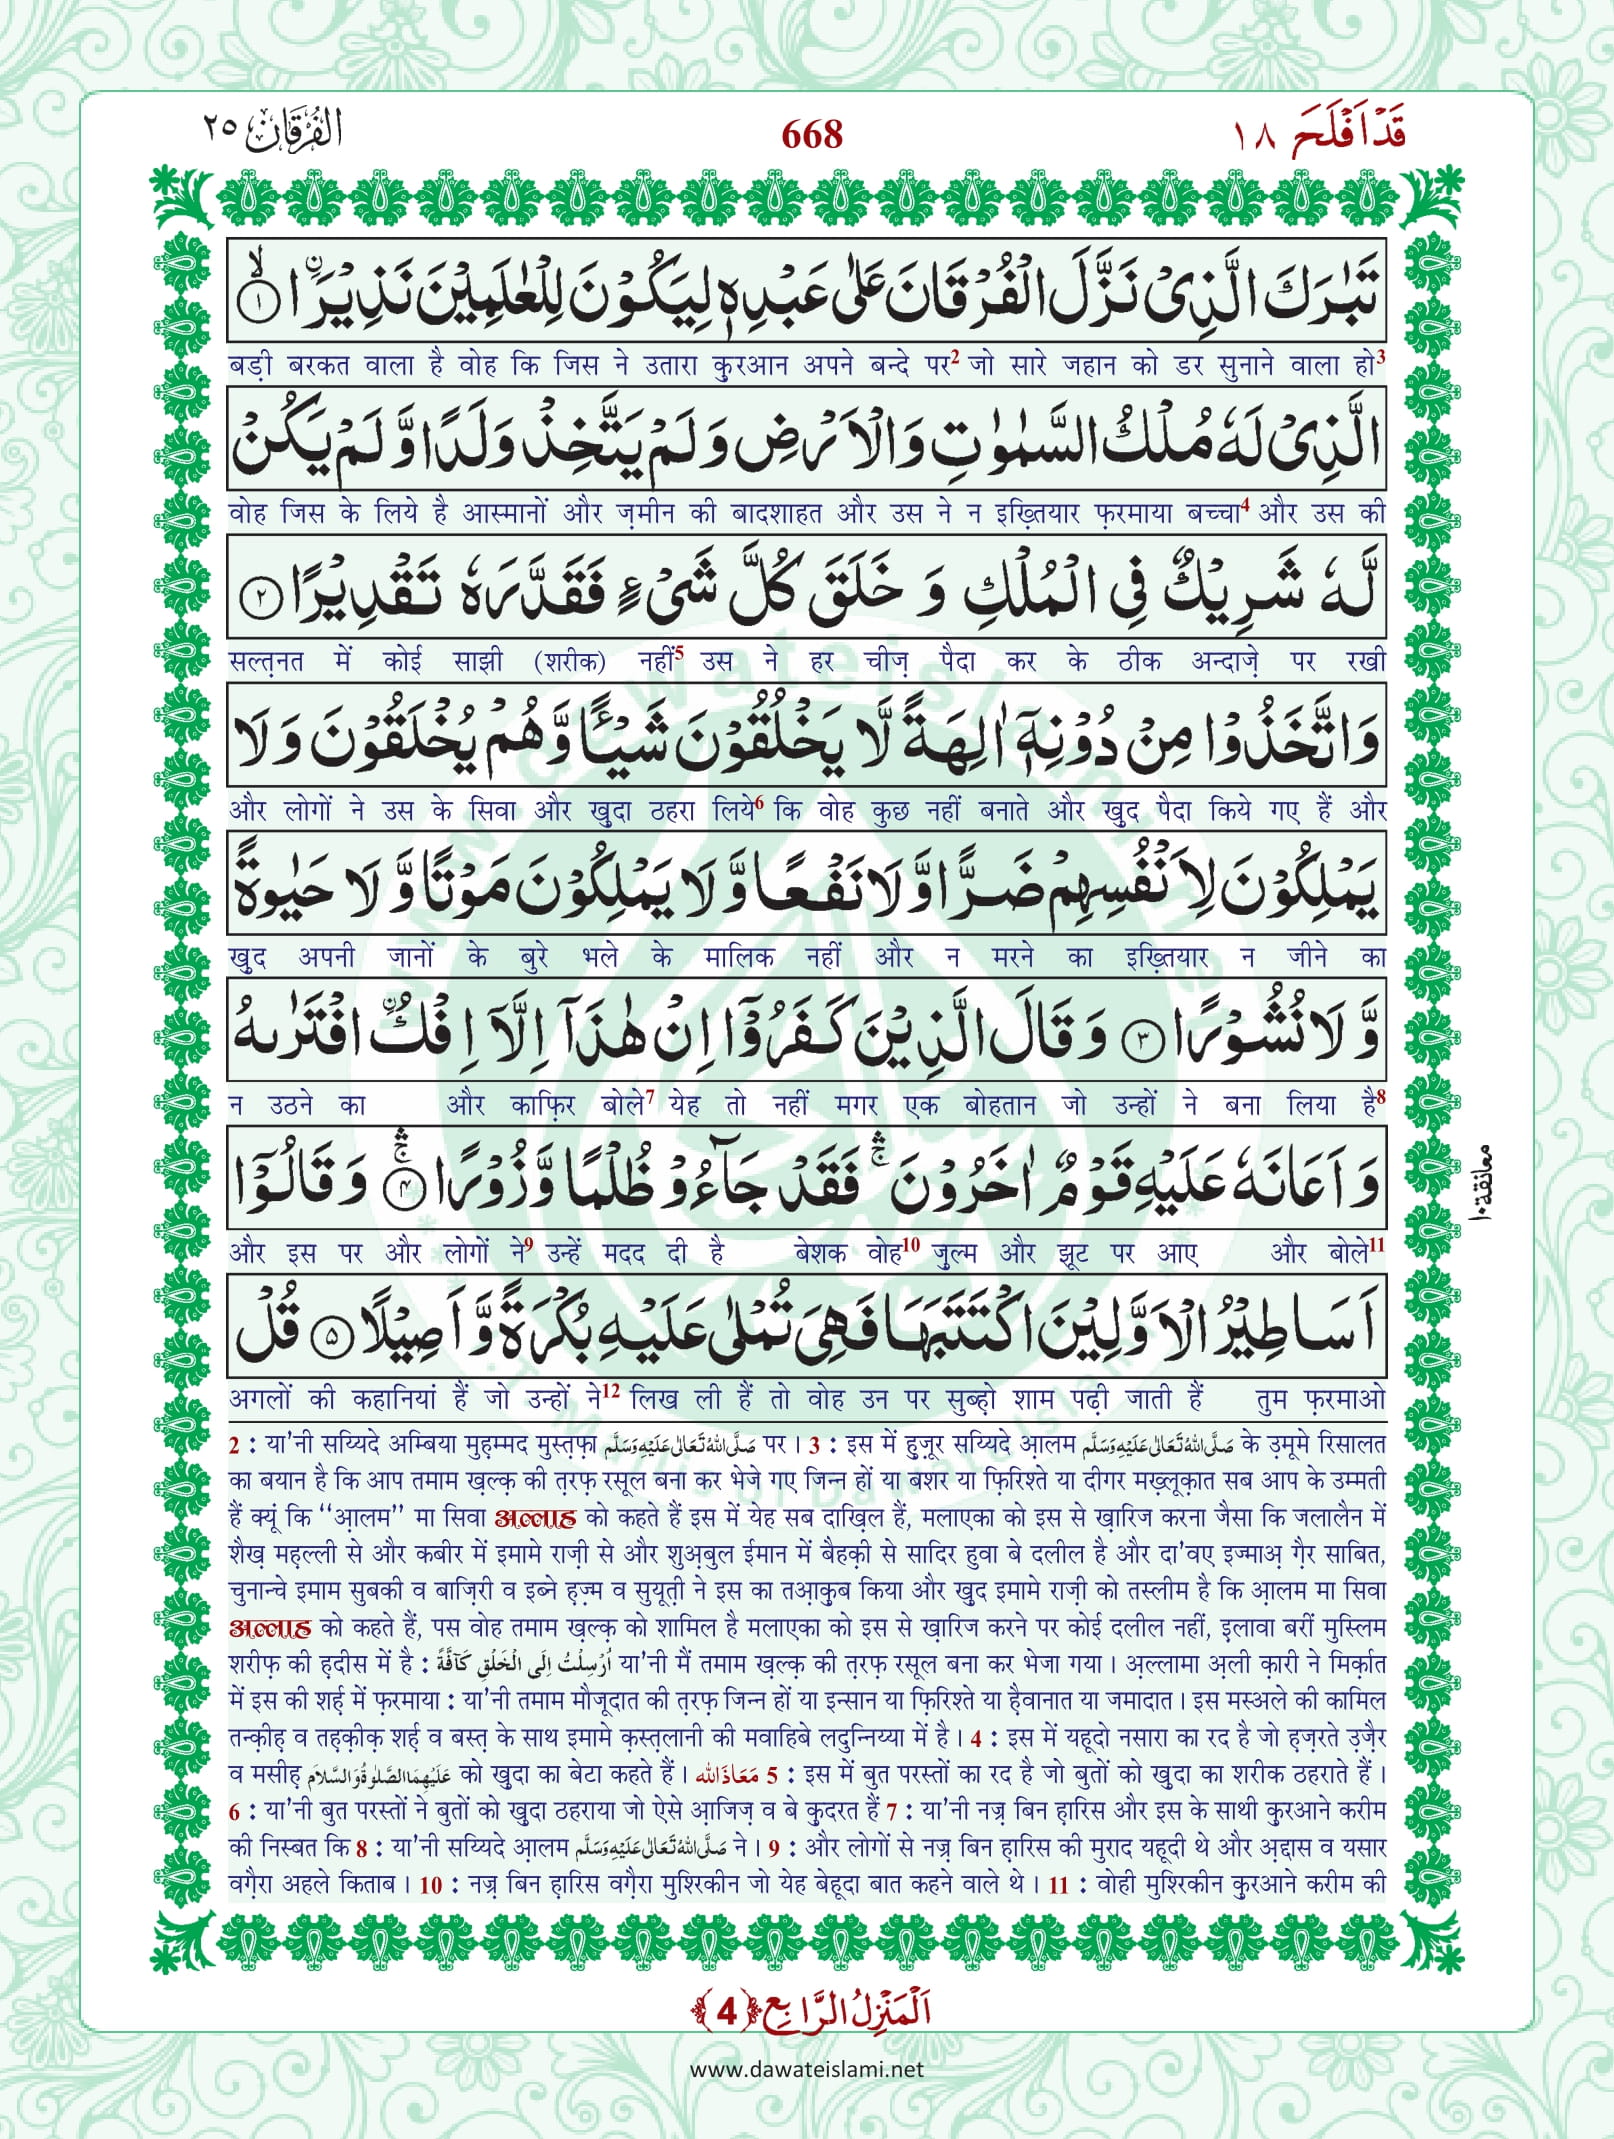 قَدْ اَفْلَحَ ١٨
668
الفُرْقَان ٢٥
تَبٰرَكَ الَّذِیْ نَزَّلَ الْفُرْقَانَ عَلٰى عَبْدِهٖ لِیَكُوْنَ لِلْعٰلَمِیْنَ نَذِیْرَاۙﰳ ﴿۱﴾
बड़ी बरकत वाला है वोह कि जिस ने उतारा कुरआन अपने बन्दे पर2 जो सारे जहान को डर सुनाने वाला हो3
الَّذِیْ لَهٗ مُلْكُ السَّمٰوٰتِ وَ الْاَرْضِ وَ لَمْ یَتَّخِذْ وَلَدًا وَّ لَمْ یَكُنْ
वोह जिस के लिये है आस्मानों और ज़मीन की बादशाहत और उस ने न इख़्तियार फ़रमाया बच्चा4 और उस की
لَّهٗ شَرِیْكٌ فِی الْمُلْكِ وَ خَلَقَ كُلَّ شَیْءٍ فَقَدَّرَهٗ تَقْدِیْرًا ﴿۲﴾
सल्त़नत में कोई साझी (शरीक) नहीं5 उस ने हर चीज़ पैदा कर के ठीक अन्दाज़े पर रखी
وَ اتَّخَذُوْا مِنْ دُوْنِهٖۤ اٰلِهَةً لَّا یَخْلُقُوْنَ شَیْــٴًـا وَّ هُمْ یُخْلَقُوْنَ وَ لَا
और लोगों ने उस के सिवा और ख़ुदा ठहरा लिये6 कि वोह कुछ नहीं बनाते और ख़ुद पैदा किये गए हैं और
یَمْلِكُوْنَ لِاَنْفُسِهِمْ ضَرًّا وَّ لَا نَفْعًا وَّ لَا یَمْلِكُوْنَ مَوْتًا وَّ لَا حَیٰوةً
ख़ुद अपनी जानों के बुरे भले के मालिक नहीं और न मरने का इख़्तियार न जीने का
وَّ لَا نُشُوْرًا ﴿۳﴾ وَ قَالَ الَّذِیْنَ كَفَرُوْۤا اِنْ هٰذَاۤ اِلَّاۤ اِفْكُ ﰳافْتَرٰىهُ
न उठने का और काफ़िर बोले7 येह तो नहीं मगर एक बोहतान जो उन्हों ने बना लिया है8
وَ اَعَانَهٗ عَلَیْهِ قَوْمٌ اٰخَرُوْنَ ۚۛ فَقَدْ جَآءُوْ ظُلْمًا وَّ زُوْرًا ۚۛ ﴿۴﴾ وَ قَالُوْۤا
और इस पर और लोगों ने9 उन्हें मदद दी है बेशक वोह10 ज़ुल्म और झूट पर आए और बोले11
اَسَاطِیْرُ الْاَوَّلِیْنَ اكْتَتَبَهَا فَهِیَ تُمْلٰى عَلَیْهِ بُكْرَةً وَّ اَصِیْلًا ﴿۵﴾ قُلْ
अगलों की कहानियां हैं जो उन्हों ने12 लिख ली हैं तो वोह उन पर सुब्ह़ो शाम पढ़ी जाती हैं तुम फ़रमाओ
معانقة ١٠
2 : या'नी सय्यिदे अम्बिया मुह़म्मद मुस्त़फ़ा صَلَّى اللهُ تَعَالٰى عَلَيْهِ وَسَلَّم पर । 3 : इस में हुज़ूर सय्यिदे आ़लम صَلَّى اللهُ تَعَالٰى عَلَيْهِ وَسَلَّم के उ़मूमे रिसालत
का बयान है कि आप तमाम ख़ल्क़ की त़रफ़ रसूल बना कर भेजे गए जिन्न हों या बशर या फ़िरिश्ते या दीगर मख़्लूक़ात सब आप के उम्मती
हैं क्यूं कि ‘‘आ़लम’’ मा सिवा अल्लाह को कहते हैं इस में येह सब दाख़िल हैं, मलाएका को इस से ख़ारिज करना जैसा कि जलालैन में
शैख़ मह़ल्ली से और कबीर में इमामे राज़ी से और शुअ़बुल ईमान में बैहक़ी से सादिर हुवा बे दलील है और दा'वए इज्माअ़ ग़ैर साबित,
चुनान्चे इमाम सुबकी व बाज़िरी व इब्ने ह़ज़्म व सुयूत़ी ने इस का तआ़कुब किया और ख़ुद इमामे राज़ी को तस्लीम है कि आ़लम मा सिवा
अल्लाह को कहते हैं, पस वोह तमाम ख़ल्क़ को शामिल है मलाएका को इस से ख़ारिज करने पर कोई दलील नहीं, इ़लावा बरीं मुस्लिम
शरीफ़ की ह़दीस में है : اُرْسِلْتُ اِلَى الْخَلْقِ كَآفَّةً या'नी मैं तमाम ख़ल्क़ की त़रफ़ रसूल बना कर भेजा गया । अ़ल्लामा अ़ली क़ारी ने मिर्क़ात
में इस की शर्ह़ में फ़रमाया : या'नी तमाम मौजूदात की त़रफ़ जिन्न हों या इन्सान या फ़िरिश्ते या ह़ैवानात या जमादात । इस मस्अले की कामिल
तन्क़ीह़ व तह़क़ीक़ शर्ह़ व बस्त़ के साथ इमामे क़स्त़लानी की मवाहिबे लदुन्निय्या में है । 4 : इस में यहूदो नसारा का रद है जो ह़ज़रते उ़ज़ैर
व मसीह़ عَلَيْهِمَا الصَّلٰوةُ وَالسَّلَام को ख़ुदा का बेटा कहते हैं । مَعَاذَ الله 5 : इस में बुत परस्तों का रद है जो बुतों को ख़ुदा का शरीक ठहराते हैं ।
6 : या'नी बुत परस्तों ने बुतों को ख़ुदा ठहराया जो ऐसे आ़जिज़ व बे क़ुदरत हैं 7 : या'नी नज़्र बिन ह़ारिस और इस के साथी क़ुरआने करीम
की निस्बत कि 8 : या'नी सय्यिदे आ़लम صَلَّى اللهُ تَعَالٰى عَلَيْهِ وَسَلَّم ने । 9 : और लोगों से नज़्र बिन ह़ारिस की मुराद यहूदी थे और अ़द्दास व यसार
वग़ैरा अहले किताब । 10 : नज़्र बिन ह़ारिस वग़ैरा मुश्रिकीन जो येह बेहूदा बात कहने वाले थे । 11 : वोही मुश्रिकीन क़ुरआने करीम की
اَلْمَنْزِلُ الرَّابِع ﴿4﴾
www.dawateislami.net